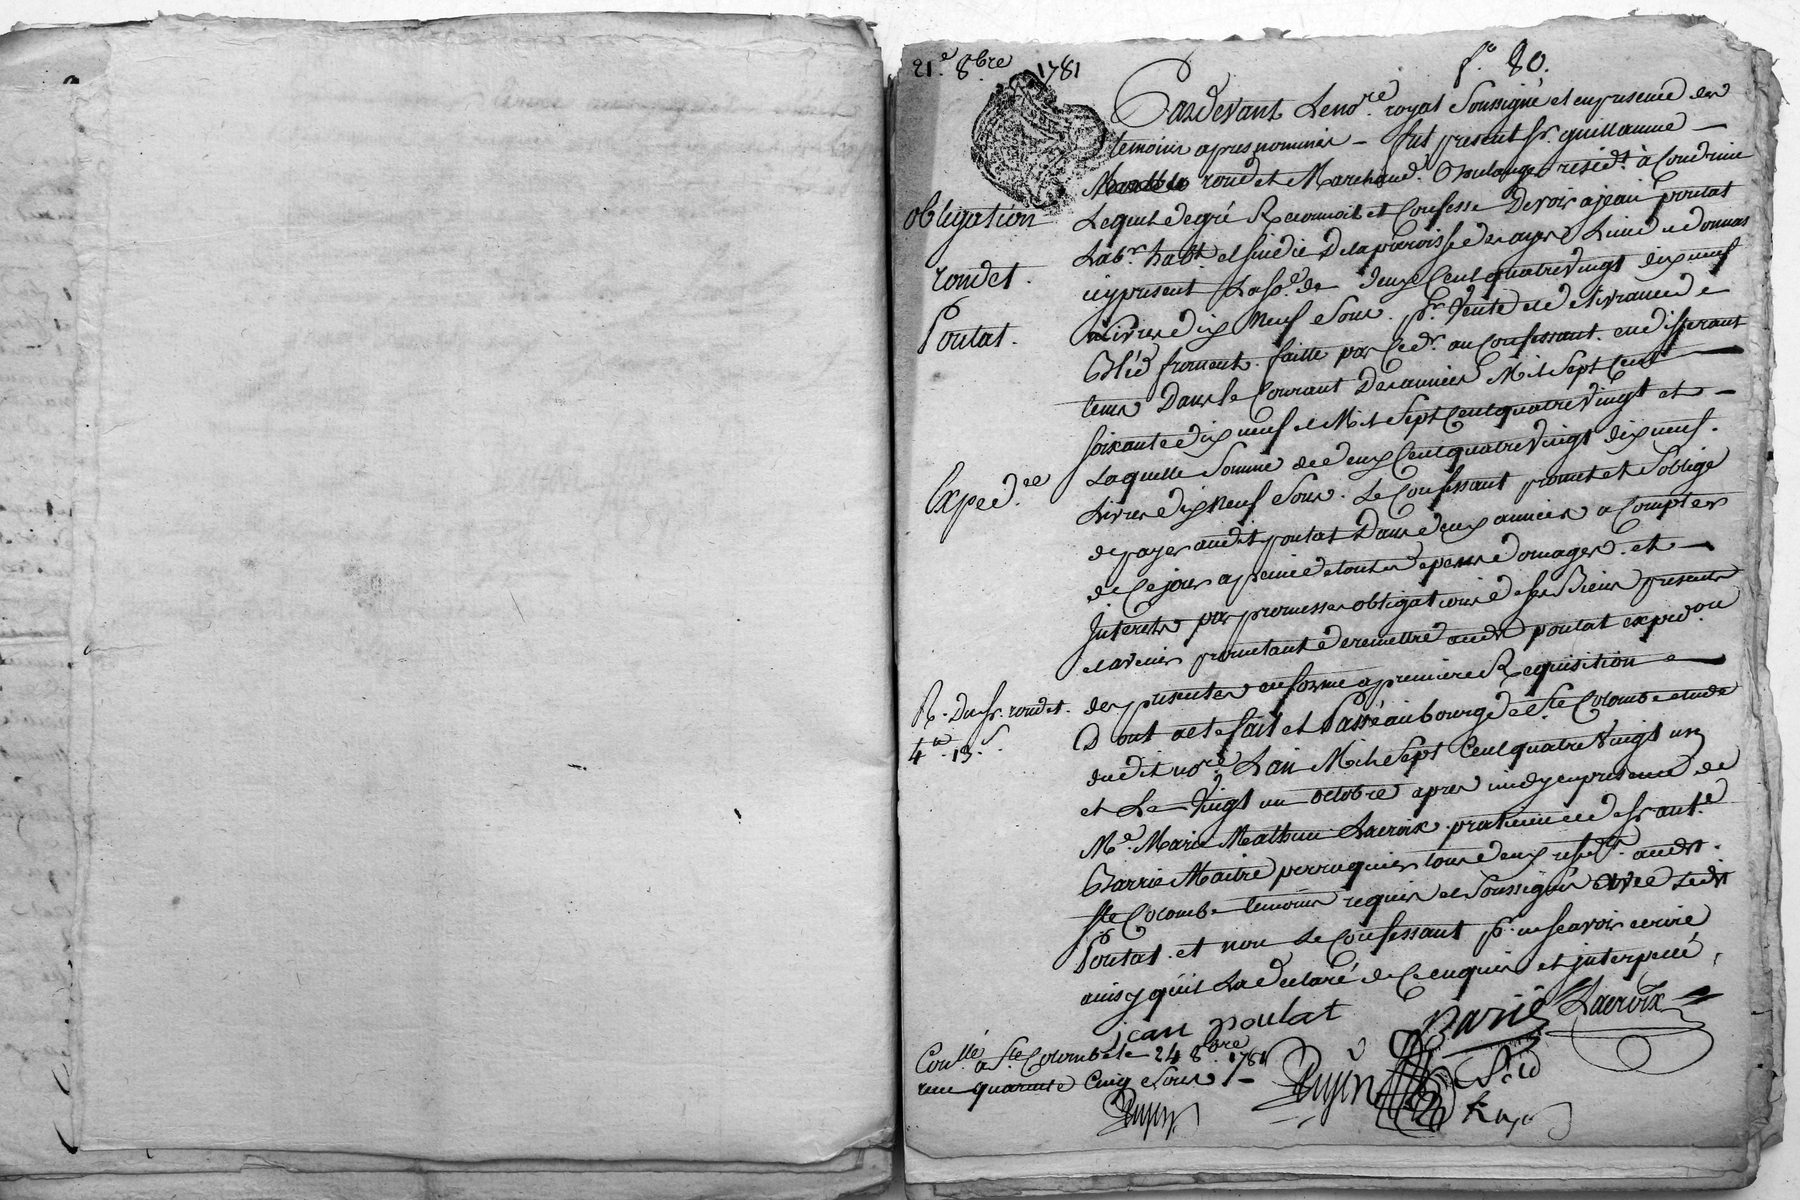 21.e 8.bre 1781
f.o 80.
Pardevant Le no.re royal Soussigné et en presence des
temoins apres nommés — fut present Sr. guillaume —
rondet Marchand Boulanger resid.t à
obligation
Lequel de gré Reconnoit et Confesse Devoir a jean poutat
Lab.r hab.t et sindic De la paroisse de
rondet.
icy present La so.e de deux Cent quatre Vingt dix neuf
Poutat.
Livres dix Neuf Sous. p.r Vente et delivrance de
Bléd froment faitte par Led.t au Confessant en differant
tems Dans le Courant Des années Mil Sept Cent
soixante dix neuf et Mil Sept Cent quatre Vingt et —
Laquelle Somme de deux Cent quatre Vingt dix neuf
Exped.ée
Livres dix Neuf Sous. Le Confessant promet et S'oblige
de payer audit poutat Dans deux années a Compter
de Ce jour a peine de tous depens domages et —
Interets par promesses obligations de ses Biens presents
et avenir promettant de remettre aud.t poutat exped.on
des presentes en forme a premiere Requisition —
R. Du Sr. rondet.
4.tt 13.s
Dont acte fait et Passé au bourg de Ste. Colombe etude
dudit no.re L'an Mil Sept Cent quatre Vingt un
et Le Vingt un octobre apres midy en presence de
M.e Marie Mathieu Lacroix praticien et de Sr. ant.e
Barrié Maitre perruquier tous deux aud.t
Ste Colombe temoins requis et Soussignés avec Led.t
Poutat et non Le Confessant p.r ne scavoir ecrire
ainsy quil La declaré de Ce enquis et interpellé,
jean poutat
Barrié
Lacroix
Con.llé à Ste. Colombe le 24 8.bre 1781
recu quarante Cinq Sous